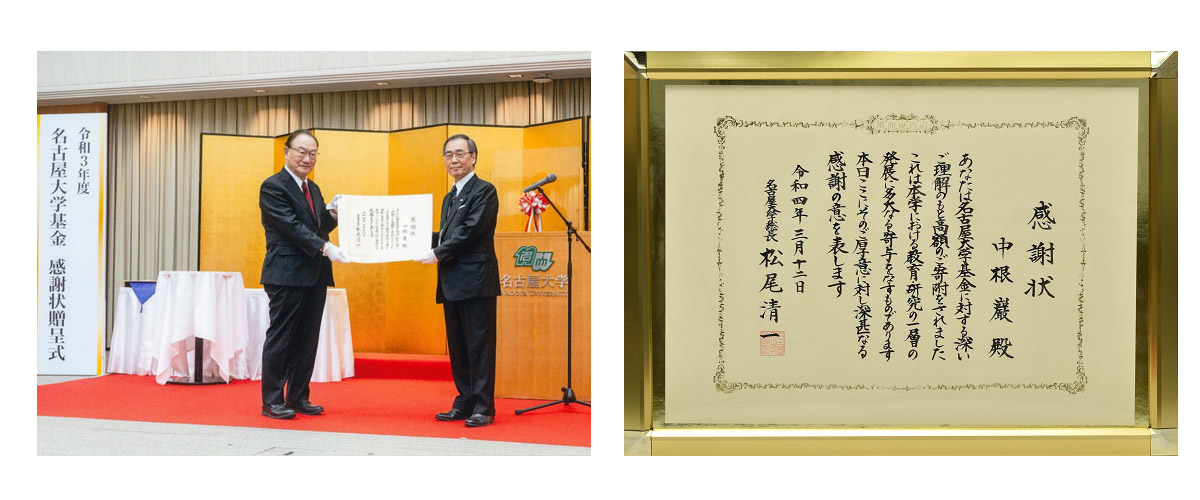 令和3年度
名古屋大学基金 感謝状贈呈式
感謝状
名古屋大学
NAGOYA UNIVERSITY
感謝状
中根 巖 殿
あなたは名古屋大学基金に対する深い
ご理解のもと高額のご寄附をされました
これは本学における教育研究の一層の
発展に多大なる寄与をなすものであります
本日ここにそのご厚意に対し深甚なる
感謝の意を表します
令和四年三月十二日
名古屋大学総長 松尾清一